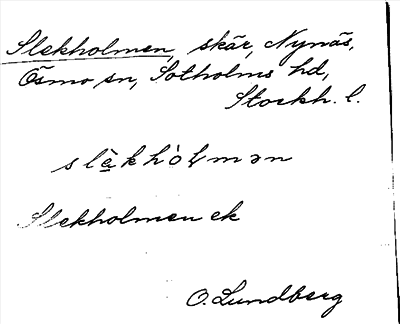 Slekholmen, skär, Nynäs,
Ösmo sn, Sotholms hd,
Stockh. l.
slèkhòlmən
Slekholmen ek
O. Lundberg